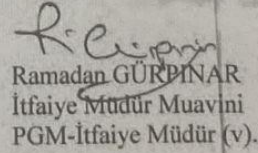 R. Gürpınar
Ramadan GÜRPINAR
İtfaiye Müdür Muavini
PGM-İtfaiye Müdür (v).